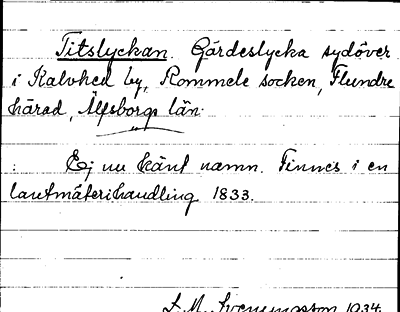 Titslyckan. Gärdeslycka sydöver
i Kalvhed by, Rommele socken, Flundre
härad, Älfsborgs län.
Ej nu känt namn. Finnes i en
lantmäterihandling 1833.
1934.